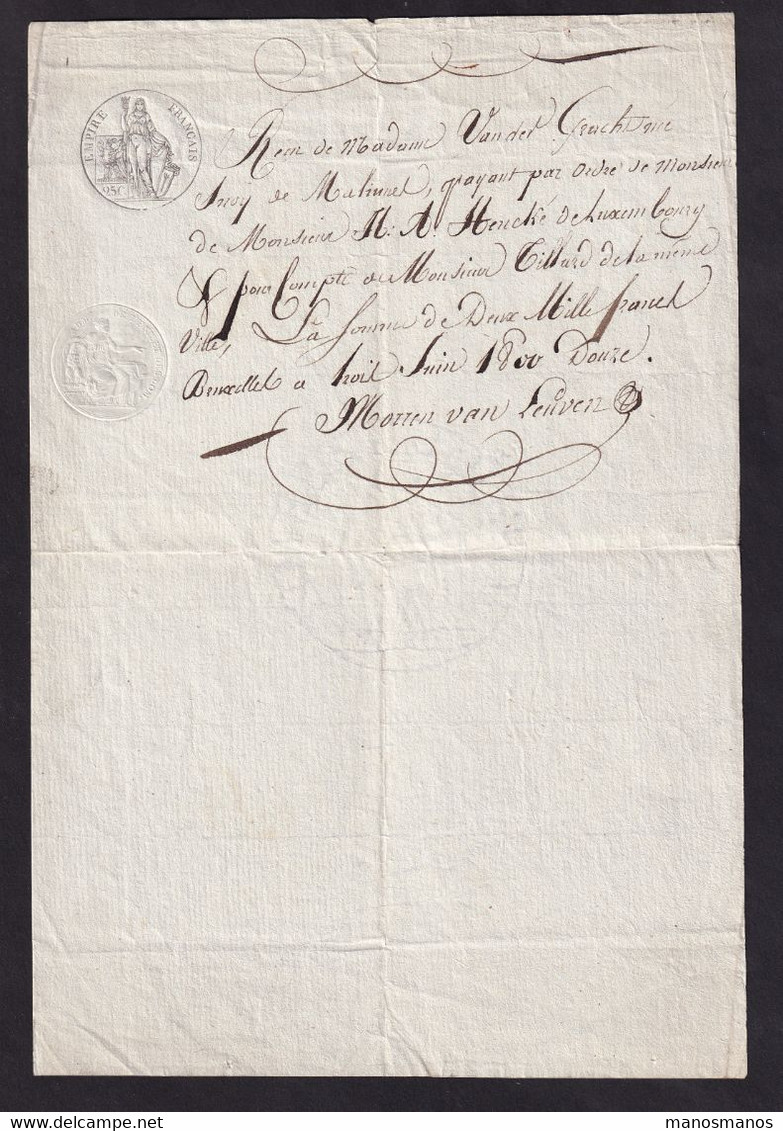 EMPIRE FRANÇAIS
25C
Recu de Madame Van der Gracht née
de Malines, payant par ordre de Monsieur
de Monsieur N: A. Hencké de Luxembourg
& pour Compte de Monsieur Tillard de la même
Ville, La somme de Deux Mille francs
Bruxelles a trois Juin 1800 Douze.
Morren van Leuven
manosmanos